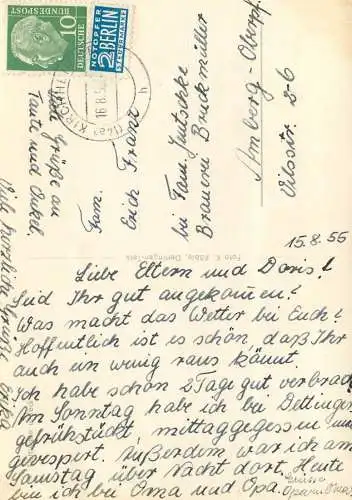 10
DEUTSCHE
BUNDESPOST
NOTOPFER
2 BERLIN
STEUERMARKE
(14a) KIRCHHE
16.8.5
h
Fam.
Erich Franz
bei Fam. Jeutschke
Brauerei Bruckmüller
Amberg-Oberpf.
Vilsstr. 8-6
Grüße an
Tante und Onkel.
Viele herzliche Grüße Erika
Foto K. Räble, Dettingen-Teck
15.8.55
Liebe Eltern und Doris!
Seid Ihr gut angekommen?
Was macht das Wetter bei Euch?
Hoffentlich ist es schön, daß Ihr
auch ein wenig raus könnt.
Ich habe schon 2 Tage gut verbrac
Am Sonntag habe ich bei Dettinger
gefrühstückt, mittaggegessen und
gevespert. Außerdem war ich am
Samstag über Nacht dort. Heute
bin ich bei Oma und Opa.
Opa und Oma